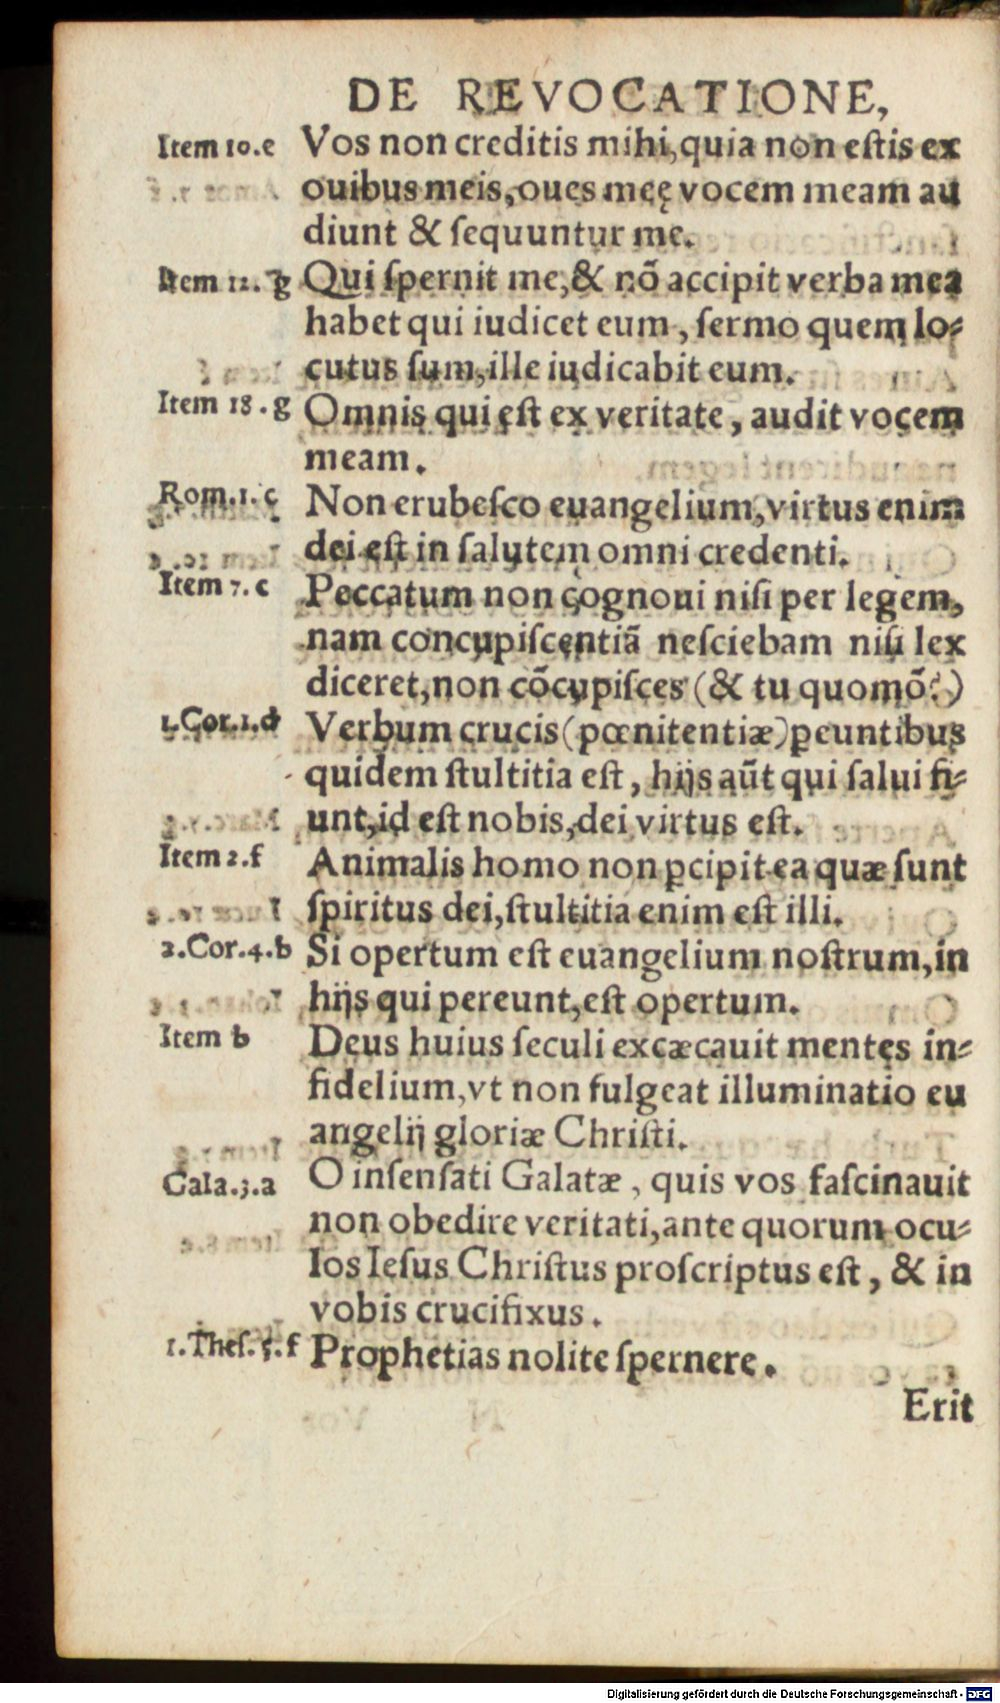 DE REVOCATIONE,
Item 10.e Vos non creditis mihi,quia non eſtis ex
ouibus meis,oues meę vocem meam au
diunt & ſequuntur me.
Item 12. g Qui ſpernit me,& nō accipit verba mea
habet qui iudicet eum, ſermo quem lo⸗
cutus ſum,ille iudicabit eum.
Item 18.g Omnis qui eſt ex veritate, audit vocem
meam.
Rom.1.c Non erubeſco euangelium,virtus enim
dei eſt in ſalutem omni credenti.
Item 7.c Peccatum non cognoui niſi per legem,
nam concupiſcentiā neſciebam niſi lex
diceret,non cōcupiſces (& tu quomō?)
1.Cor.1.d Verbum crucis(pœnitentiæ)ꝑeuntibus
quidem ſtultitia eſt, hijs aūt qui ſalui fi⸗
unt,id eſt nobis,dei virtus eſt.
Item 2.f Animalis homo non ꝑcipit ea quæ ſunt
ſpiritus dei,ſtultitia enim eſt illi.
2.Cor.4.b Si opertum eſt euangelium noſtrum,in
hijs qui pereunt,eſt opertum.
Item b Deus huius ſeculi excæcauit mentes in⸗
fidelium,vt non fulgeat illuminatio eu
angelij gloriæ Chriſti.
Gala.3.a O inſenſati Galatæ, quis vos faſcinauit
non obedire veritati,ante quorum ocu⸗
los Ieſus Chriſtus proſcriptus eſt, & in
vobis crucifixus.
1.Theſ.5.f Prophetias nolite ſpernere.
Erit
Digitalisierung gefördert durch die Deutsche Forschungsgemeinschaft - DFG